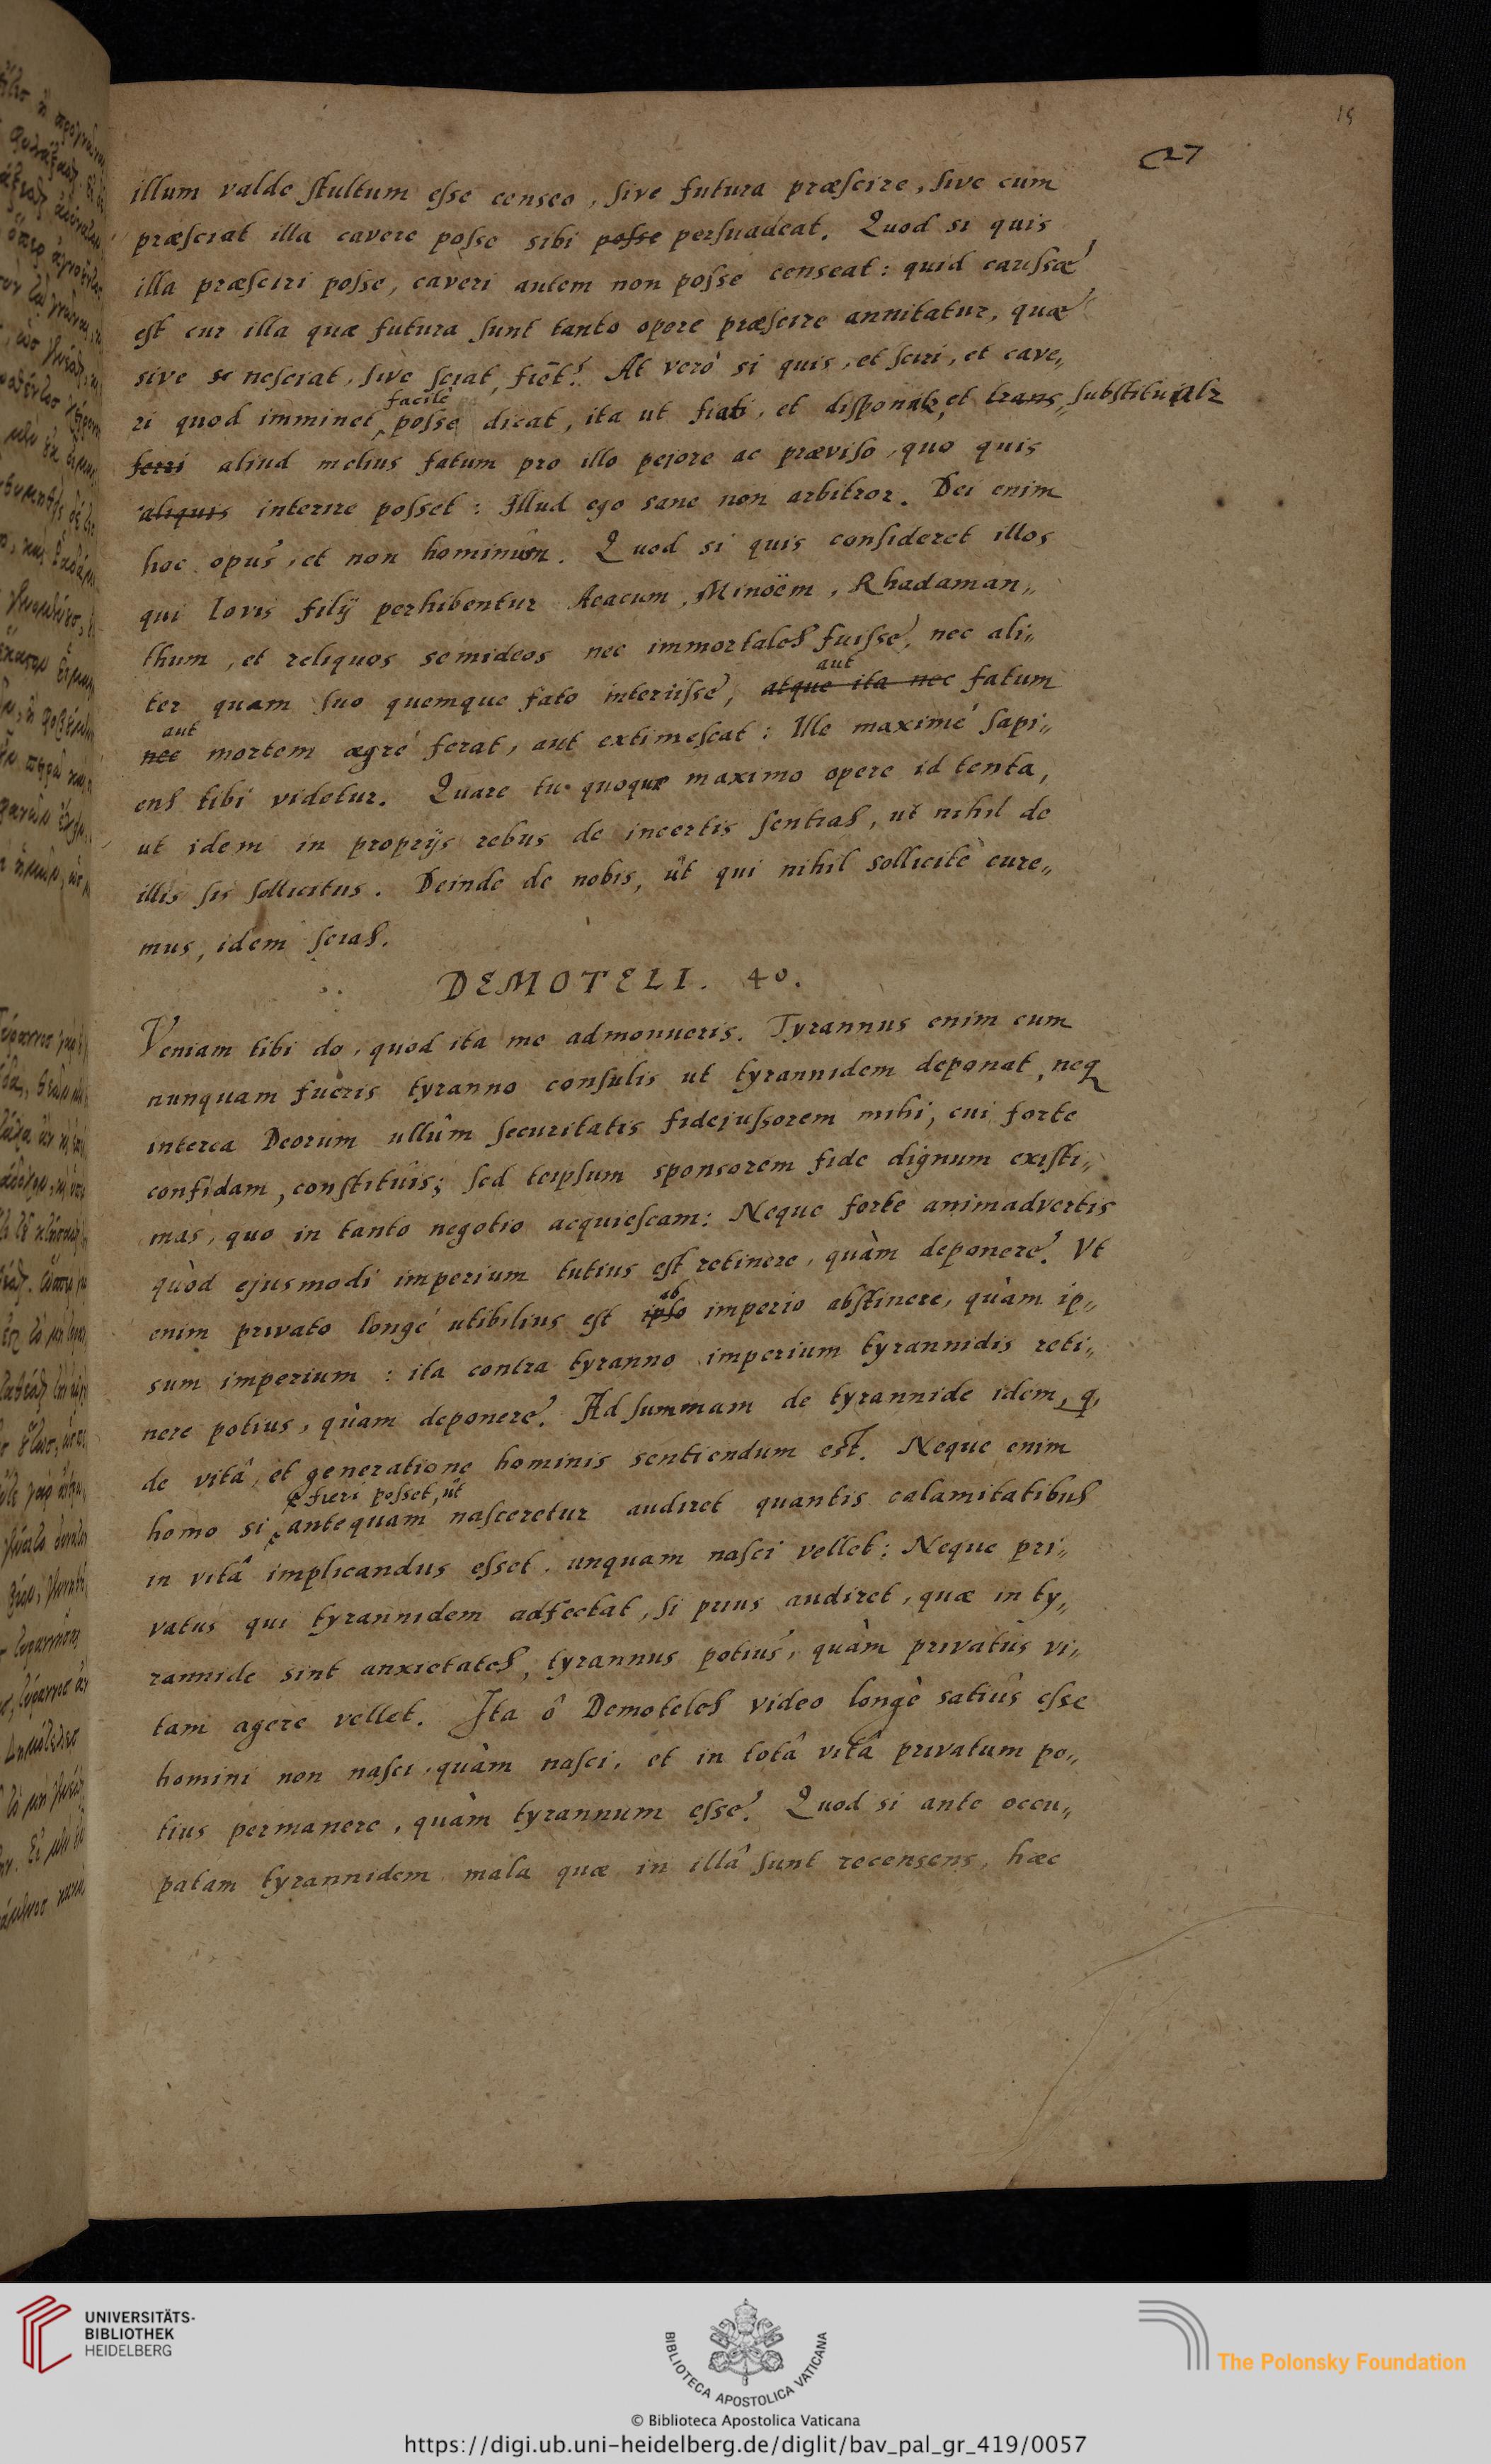 19
27
illum valde stultum esse censeo, sive futura præscire, sive cum
præsciat illa cavere posse sibi posse persuadeat. Quod si quis
illa præsciri posse, caveri autem non posse censeat: quid caussæ
est cur illa quæ futura sunt tanto opere præscire annitatur, quæ
sive se nesciat, sive sciat, fiēt? At verò si quis, et sciri, et cave„
facile
ri quod imminet posse dicat, ita ut et et trans„
ferri aliud melius fatum pro illo pejore ac præviso, quo quis
aliquis interire posset: Illud ego sane non arbitror. Dei enim
hoc opus, et non hominum. Quod si quis consideret illos
qui Iovis filij perhibentur Aeacum, Minoëm, Rhadaman„
thum, et reliquos semideos nec immortales fuisse, nec ali„
aut
ter quam suo quemque fato interiisse, atque ita nec fatum
aut
nec mortem ægré ferat, aut extimescat: Ille maximé sapi„
ens tibi videtur. Quare tu quoque maximo opere id tenta,
ut idem in proprijs rebus de incertis sentias, ut nihil de
illis sis sollicitus. Deinde de nobis, ût qui nihil sollicitè cure„
mus, idem scias.
DEMOTELI. 40.
Veniam tibi do, quod ita me admonueris. Tyrannus enim cum
nunquam fueris tyranno consulis ut tyrannidem deponat, neq
interea Deorum ullûm securitatis fidejussorem mihi, cui forte
confidam, constituis; sed teipsum sponsorem fide dignum existi„
mas, quo in tanto negotio acquiescam: Neque forte animadvertis
quòd ejusmodi imperium tutius est retinere, quàm deponere. Vt
ab
enim privato longé utibilius est ipso imperio abstinere, quàm ip„
sum imperium: ita contra tyranno imperium tyrannidis reti„
nere potius, quàm deponere. Ad summam de tyrannide idem, q,
de vitâ, et generatione hominis sentiendum est. Neque enim
fieri posset, ût
homo si antequam nasceretur audiret quantis calamitatibus
in vitâ implicandus esset, unquam nasci vellet: Neque pri„
vatus qui tyrannidem adfectat, si prius audiret, quæ in ty„
rannide sint anxietates, tyrannus potius, quàm privatus vi„
tam agere vellet. Ita ô Demoteles video longè satius esse
homini non nasci quàm nasci, et in totâ vitâ privatum po„
tius permanere, quàm tyrannum esse. Quod si ante occu„
patam tyrannidem mala quæ in illâ sunt recensens, hæc
UNIVERSITÄTS-
BIBLIOTHEK
HEIDELBERG
BIBLIOTECA APOSTOLICA VATICANA
The Polonsky Foundation
© Biblioteca Apostolica Vaticana
https://digi.ub.uni-heidelberg.de/diglit/bav_pal_gr_419/0057